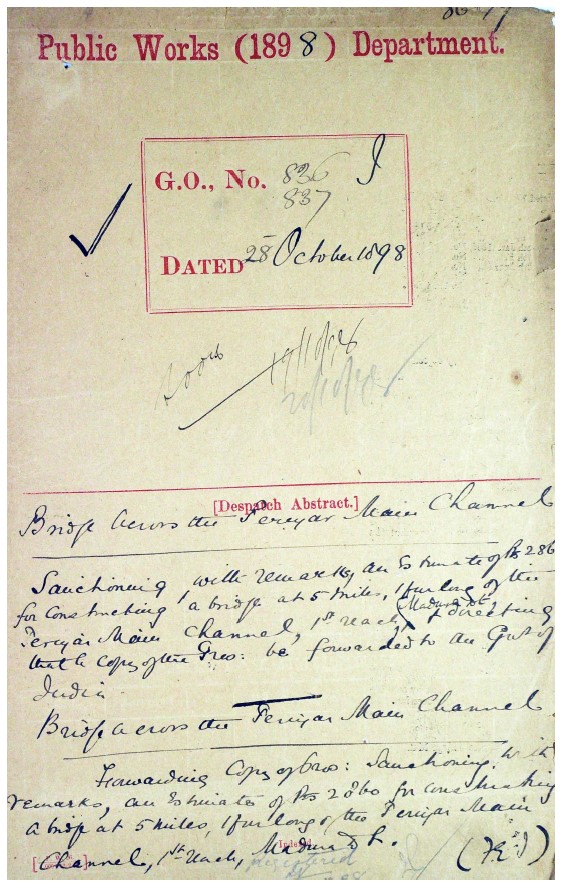 Public Works (1898) Department.
G.O., No. 836 I
837
DATED 28 October 1898
[Despatch Abstract.]
Bridge across the Periyar Main Channel
Sanctioning with remarks, an Estimate of Rs 286
for constructing a bridge at 5 miles, 1 furlong of the
Periyar Main Channel, 1st reach, Madura Dt. & directing
that a copy of the Pro: be forwarded to the Govt of
India.
Bridge across the Periyar Main Channel
Forwarding copy of Pro: Sanctioning, with
remarks, an Estimate of Rs 2860 for constructing
a bridge at 5 miles, 1 furlong of the Periyar Main
Channel, 1st reach, Madura Dt.
Registered